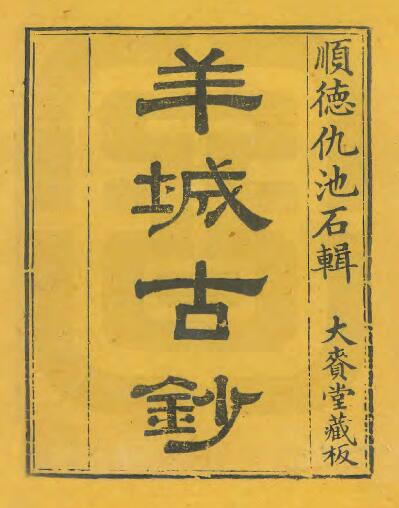 順徳仇池石輯
大賚堂藏板
羊城古鈔